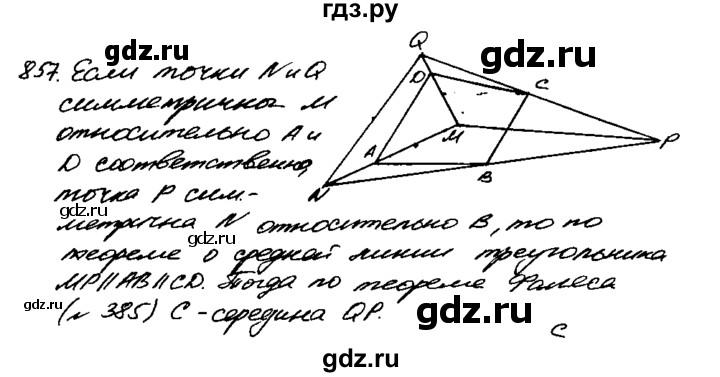 гдз.ру
gdz.ru gdz.ru
857. Если точки N и Q
симметричны M
относительно A и
D соответственно,
точка P сим-
метрична N относительно B, то по
теореме о средней линии треугольника
MP∥AB∥CD. Тогда по теореме Фалеса
(№ 385) C - середина QP.
Q
D
C
M
P
A
B
N
gdz.ru
gdz.ru
gdz.ru
gdz.ru
gdz.ru
gdz.ru
gdz.ru
C
gdz.ru